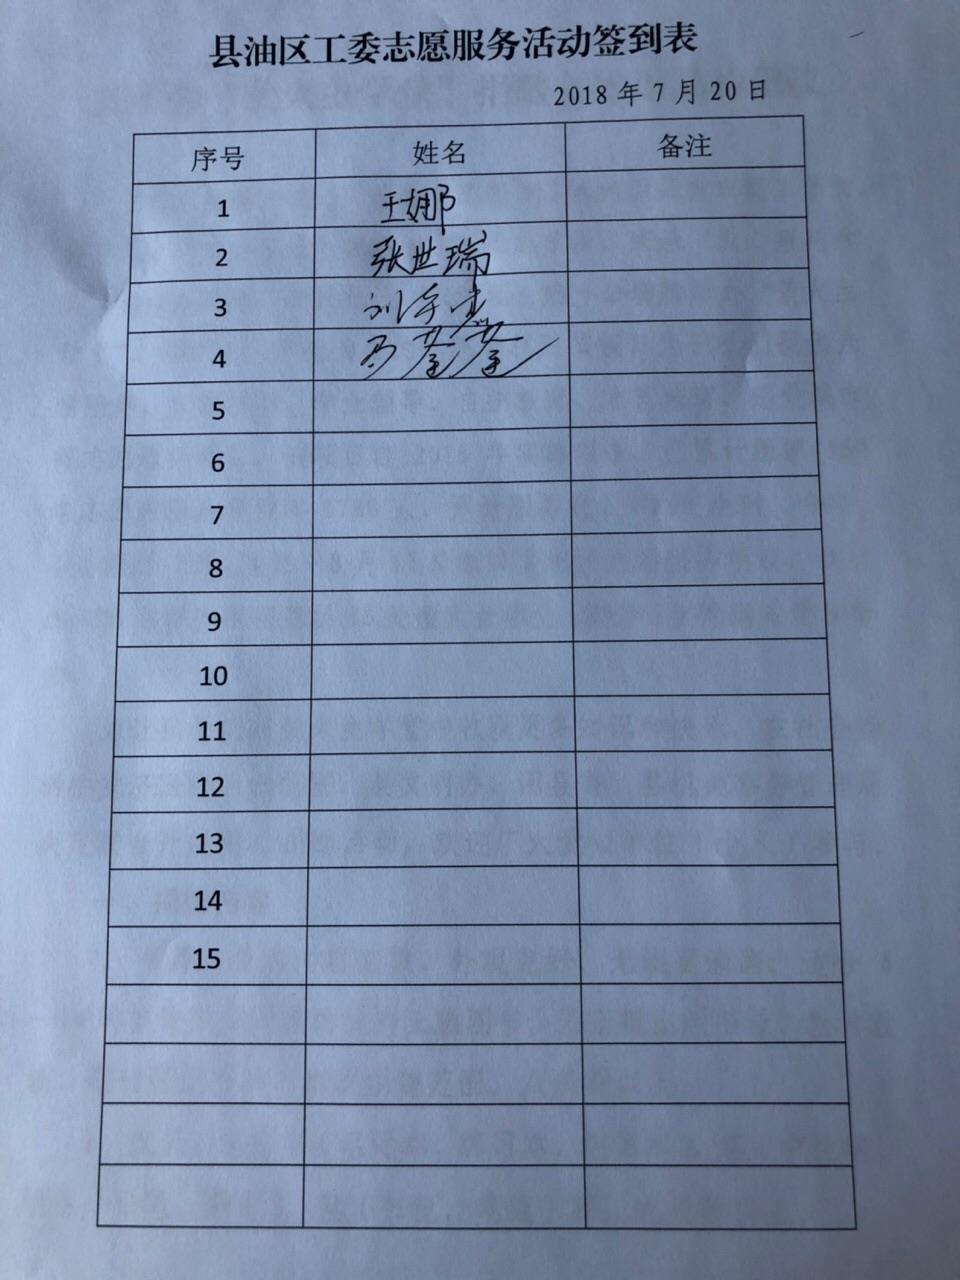 县油区工委志愿服务活动签到表
2018年7月20日
序号 姓名 备注
1 王娜
2 张世瑞
3 刘
4 马蕶蕶
5
6
7
8
9
10
11
12
13
14
15